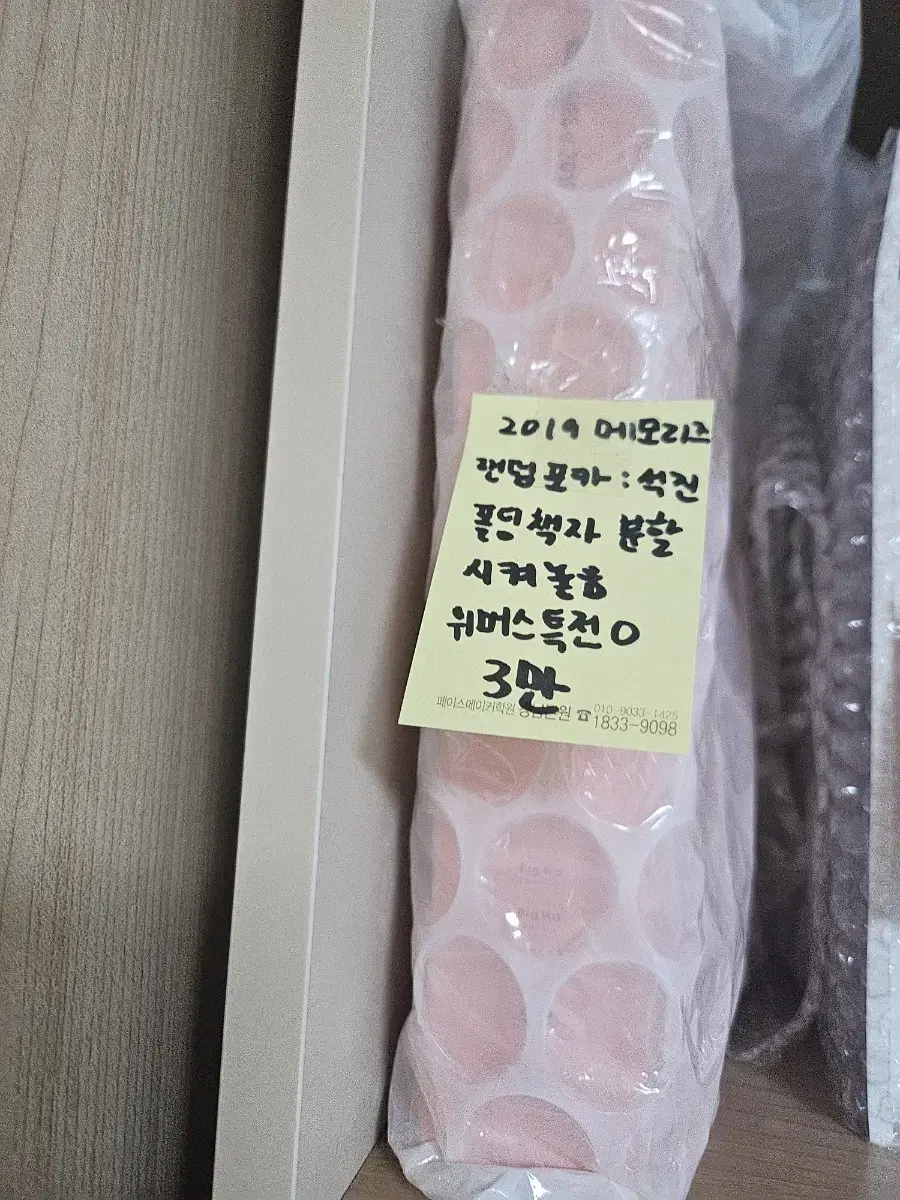 2019 메모리즈
랜덤포카 : 석진
폴딩책자 분할
시켜놓음
위버스특전 O
3만
페이스메이커학원
010-9033-1425
☎1833-9098